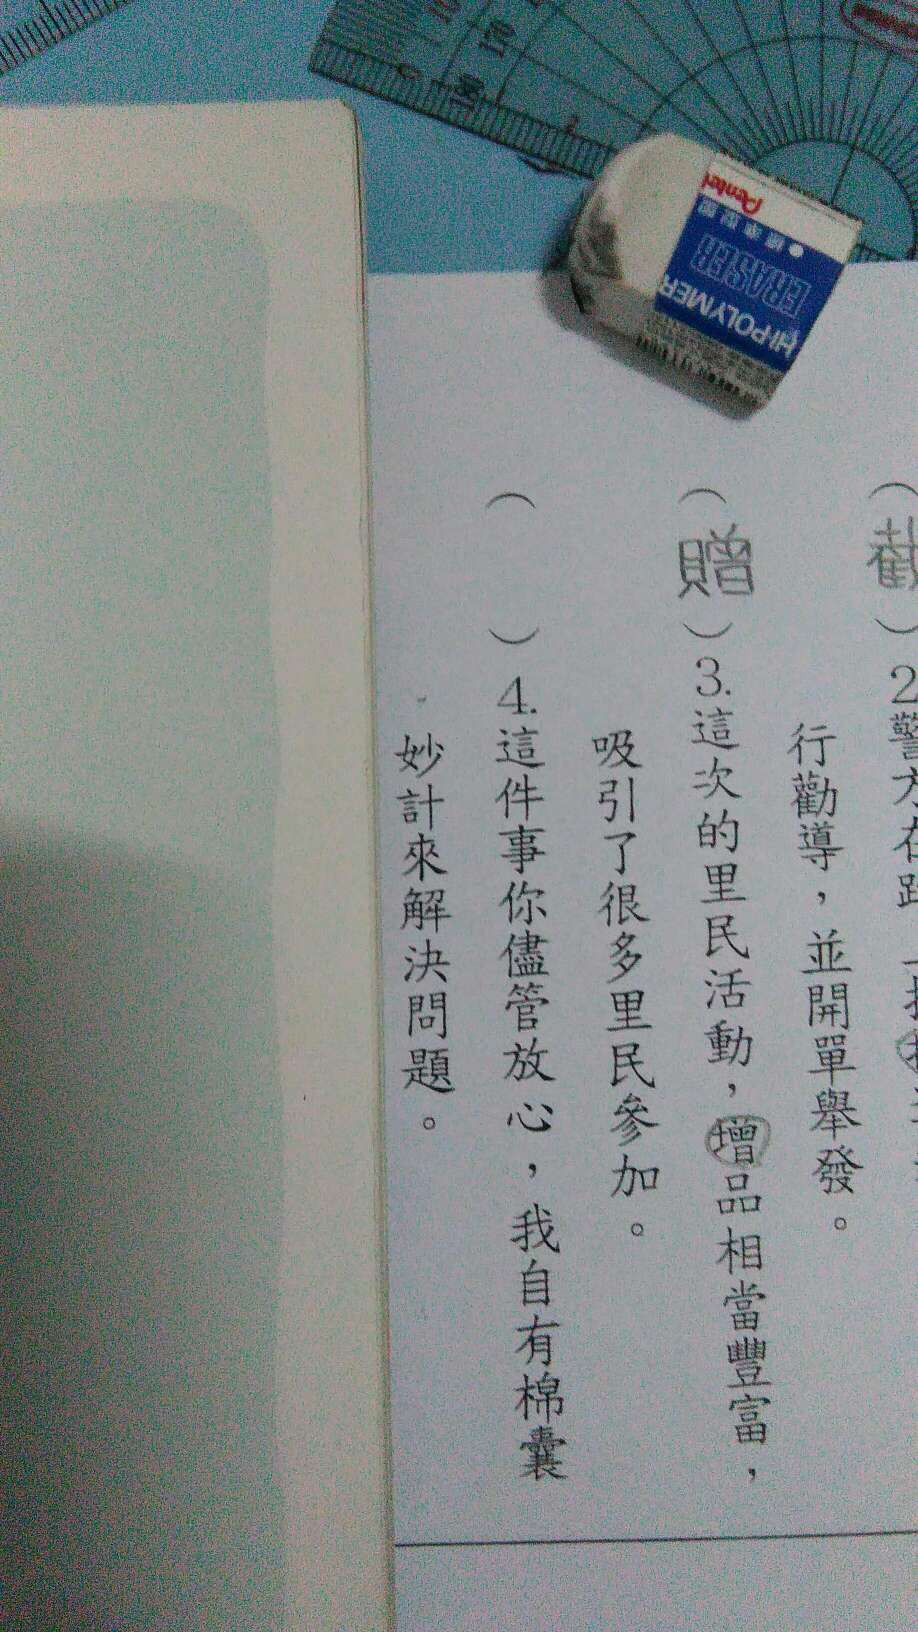 Pentel
標準型
ERASER
HI-POLYMER
行勸導，並開單舉發。
（贈）3.這次的里民活動，增品相當豐富，
吸引了很多里民參加。
（　）4.這件事你儘管放心，我自有棉囊
妙計來解決問題。